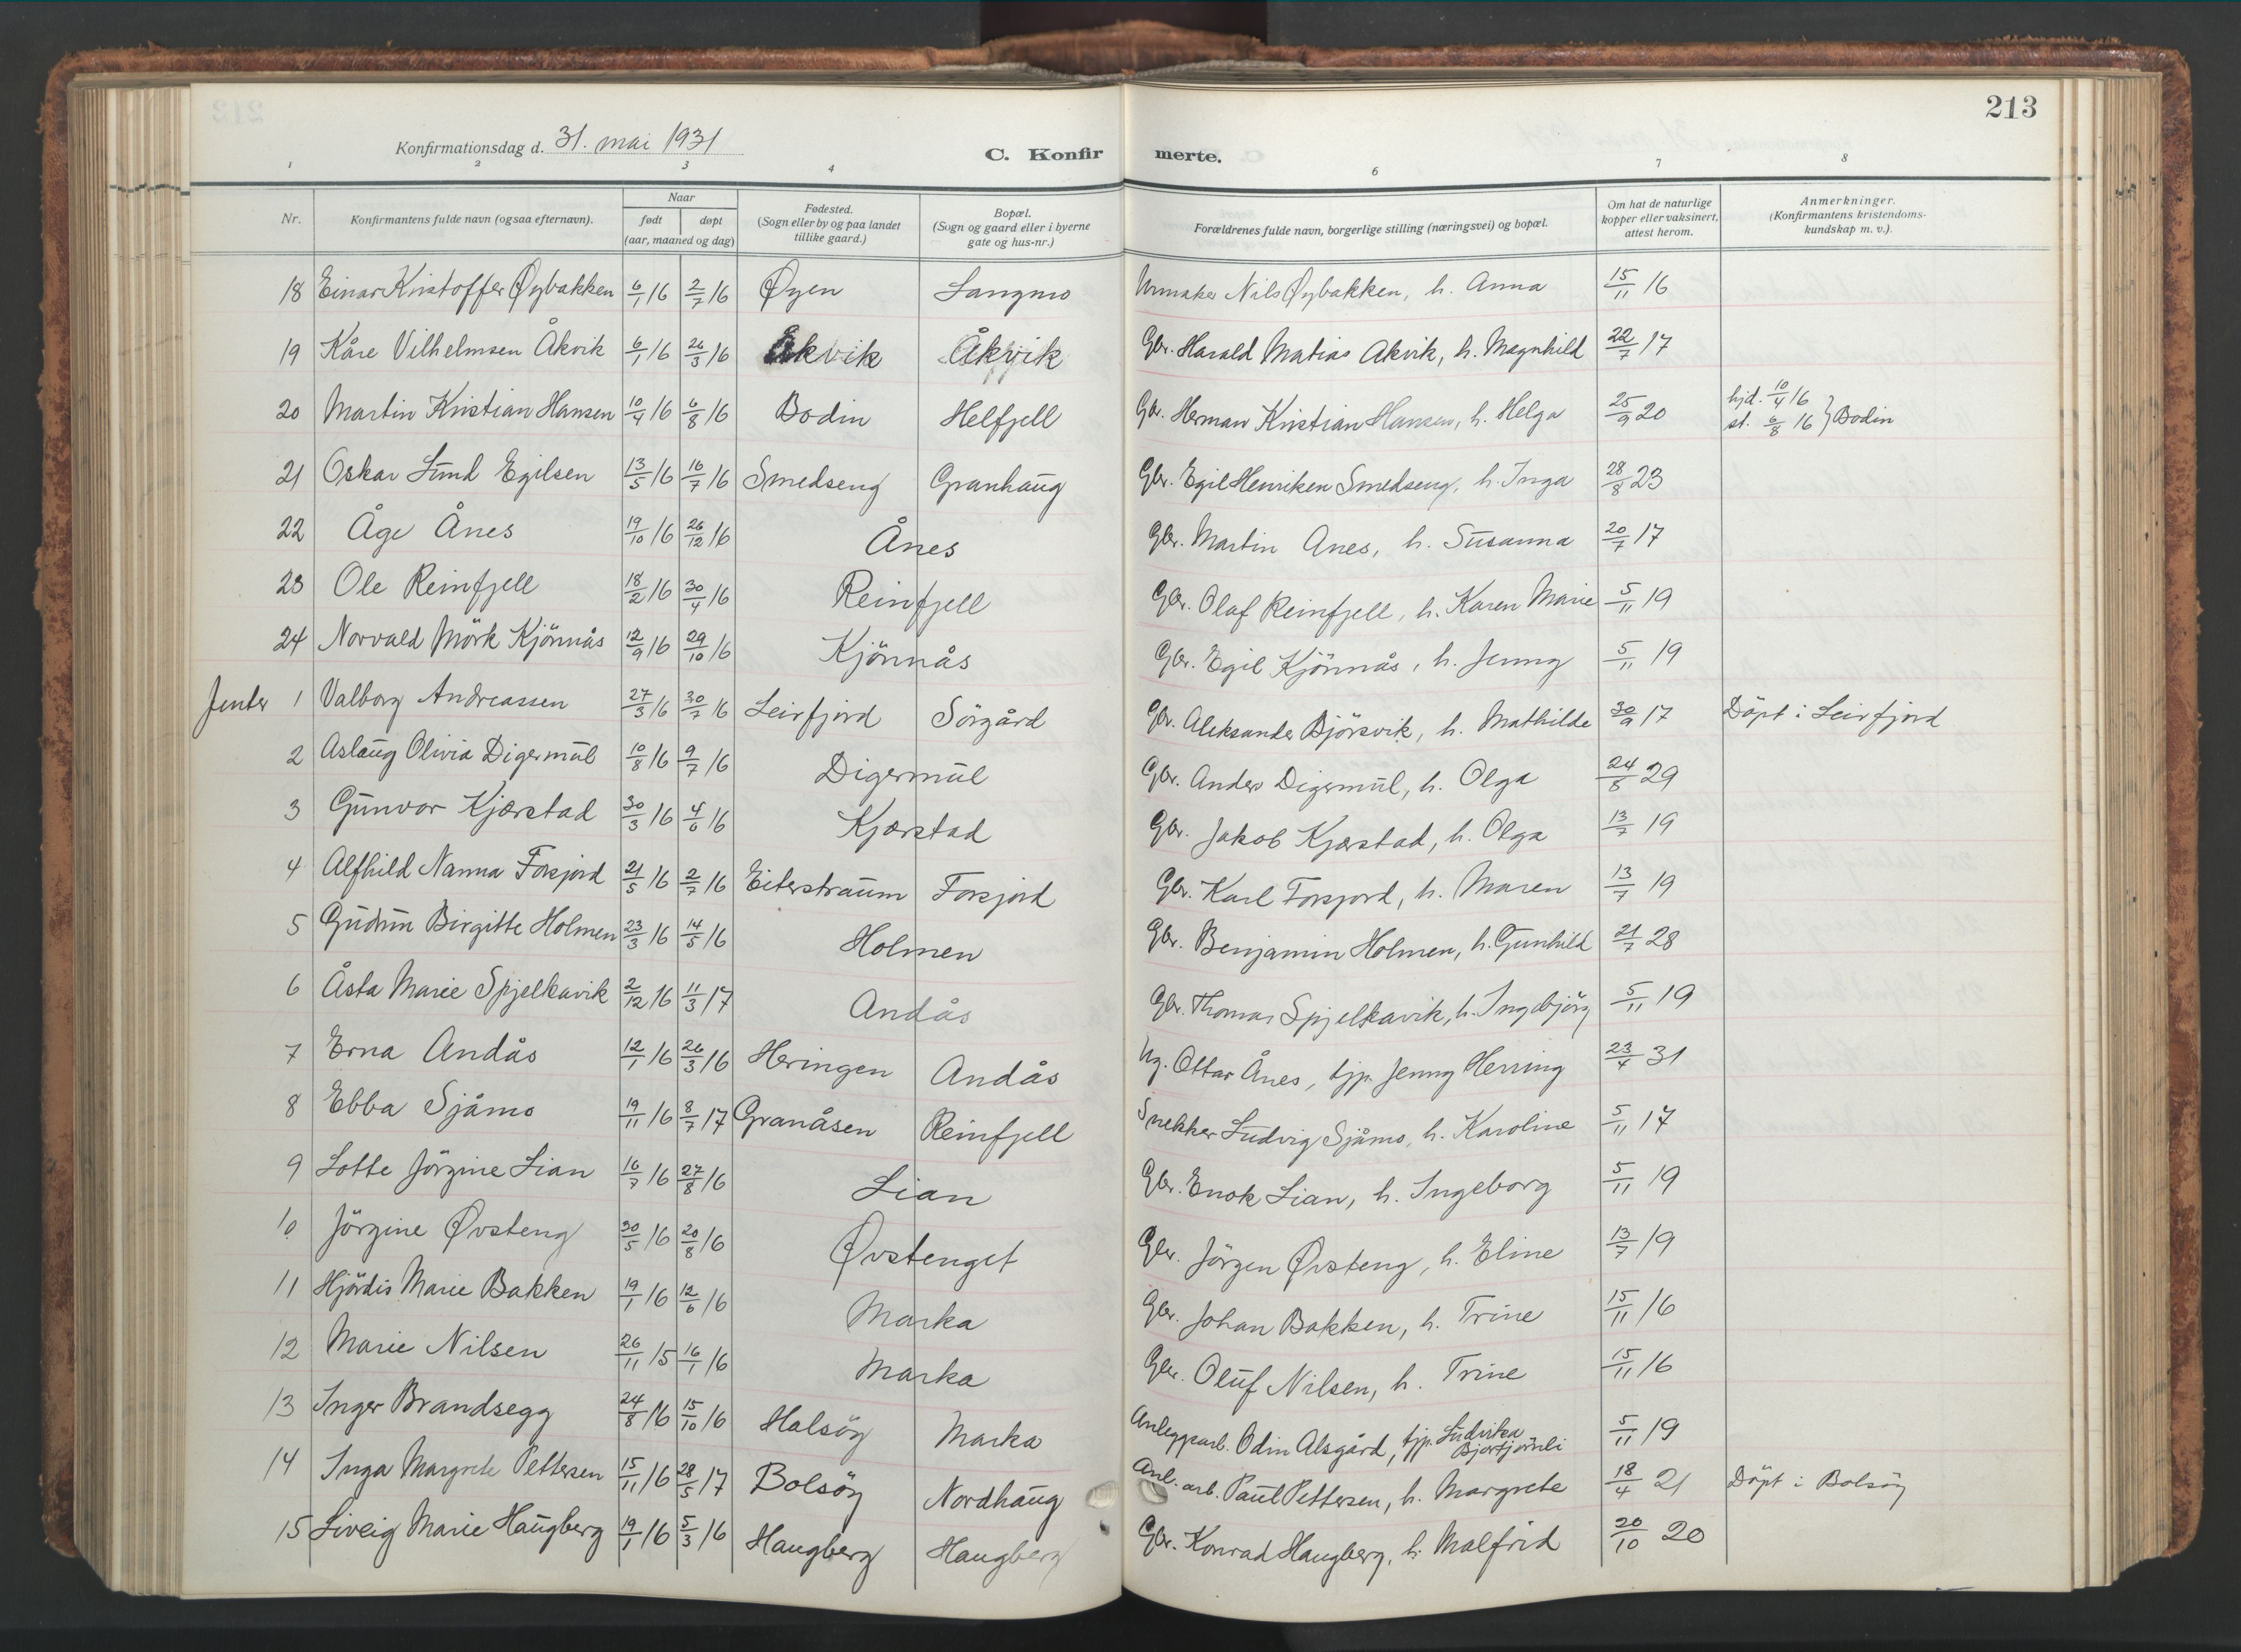 213
Konfirmationsdag d. 31. mai 1931
C. Konfirmerte.
1 2 3 4 6 7 8
Nr. Konfirmantens fulde navn (ogsaa efternavn). Naar født døpt (aar, maaned og dag) Fødested. (Sogn eller by og paa landet tillike gaard.) Bopæl. (Sogn og gaard eller i byerne gate og hus-nr.) Forældrenes fulde navn, borgerlige stilling (næringsvei) og bopæl. Om hat de naturlige kopper eller vaksinert, attest herom. Anmerkninger. (Konfirmantens kristendomskundskap m. v.).
18 Einar Kristoffer Øybakken 6/1 16 2/7 16 Øyen Langmo Urmaker Nils Øybakken, h. Anna 15/11 16
19 Kåre Vilhelmsen Åkvik 6/1 16 26/3 16 Åkvik Åkvik Gbr. Harald Matias Åkvik, h. Magnhild 22/7 17
20 Martin Kristian Hansen 10/4 16 6/8 16 Bodin Helfjell Gbr. Herman Kristian Hansen, h. Helga 25/9 20 hjd. 10/4 16 st. 6/8 16 } Bodin
21 Oskar Lund Egilsen 13/5 16 16/7 16 Smedseng Granhaug Gbr. Egil Henriksen Smedseng, h. Inga 28/8 23
22 Åge Ånes 19/10 16 26/12 16 Ånes Gbr. Martin Ånes, h. Susanna 20/7 17
23 Ole Reinfjell 18/2 16 30/4 16 Reinfjell Gbr. Olaf Reinfjell, h. Karen Marie 5/11 19
24 Norvald Mörk Kjönnås 12/9 16 29/10 16 Kjönnås Gbr. Egil Kjönnås, h. Jenny 5/11 19
Jenter 1 Valborg Andreassen 27/3 16 30/7 16 Leirfjord Sörgård Gbr. Aleksander Björsvik, h. Mathilde 30/9 17 Döpt i Leirfjord
2 Aslaug Olivia Digermul 10/8 16 9/7 16 Digermul Gbr. Anders Digermul, h. Olga 24/8 29
3 Gunvor Kjærstad 30/3 16 4/6 16 Kjærstad Gbr. Jakob Kjærstad, h. Olga 13/7 19
4 Alfhild Nanna Forsjord 21/5 16 2/7 16 Eiterstraum Forsjord Gbr. Karl Forsjord, h. Maren 13/7 19
5 Gudrun Birgitte Holmen 23/3 16 14/5 16 Holmen Gbr. Benjamin Holmen, h. Gunhild 21/7 28
6 Åsta Marie Spjelkavik 2/12 16 11/3 17 Andås Gbr. Thomas Spjelkavik, h. Ingebjörg 5/11 19
7 Erna Andås 12/1 16 26/3 16 Heringen Andås Ug. Ottar Ånes, tjp. Jenny Herring 23/4 31
8 Ebba Sjåmo 19/11 16 8/7 17 Granåsen Reinfjell Snekker Ludvig Sjåmo, h. Karoline 5/11 17
9 Lotte Jörgine Lian 16/7 16 27/8 16 Lian Gbr. Enok Lian, h. Ingeborg 5/11 19
10 Jörgine Øvsteng 30/5 16 20/8 16 Øvstenget Gbr. Jörgen Øvsteng, h. Eline 13/7 19
11 Hjördis Marie Bakken 19/1 16 12/6 16 Marka Gbr. Johan Bakken, h. Trine 15/11 16
12 Marie Nilsen 26/11 15 16/1 16 Marka Gbr. Oluf Nilsen, h. Trine 15/11 16
13 Inger Brandsegg 24/8 16 15/10 16 Halsöy Marka Anleggsarb. Odin Alsgård, tjp. Ludvika Bjortjörnli 5/11 19
14 Inga Margrete Pettersen 15/11 16 28/5 17 Bolsöy Nordhaug Anl. arb. Paul Pettersen, h. Margrete 18/4 21 Döpt i Bolsöy
15 Liveig Marie Haugberg 19/1 16 5/3 16 Haugberg Haugberg Gbr. Konrad Haugberg, h. Malfrid 20/10 20